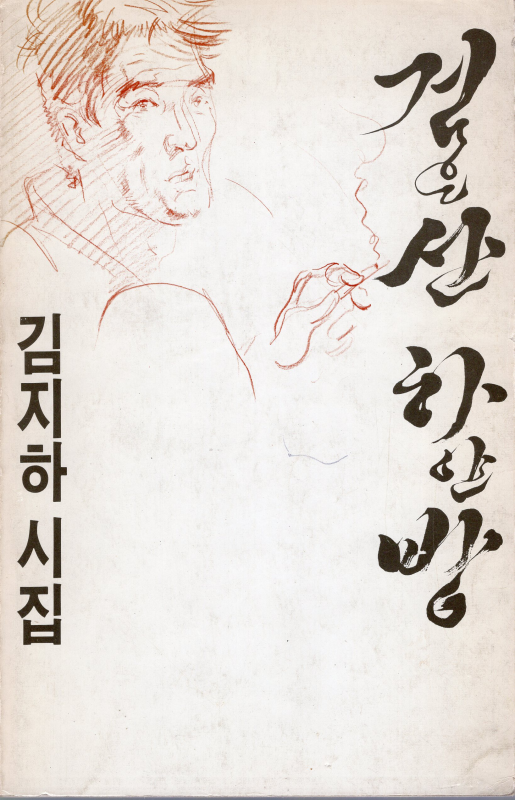 검은 산 하얀 방
김지하 시집